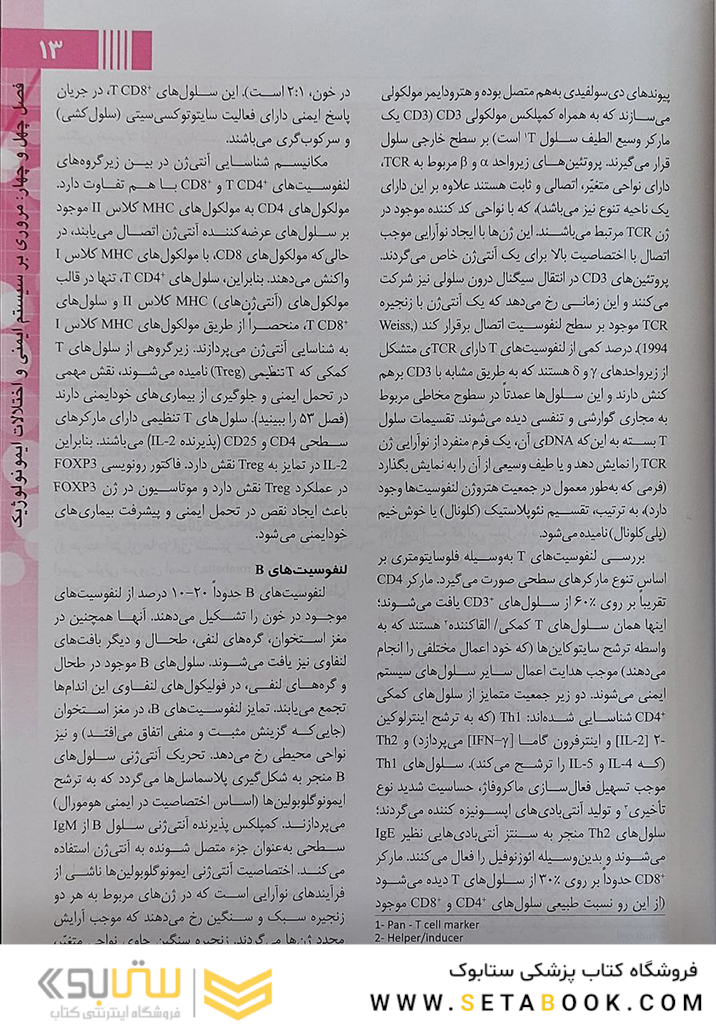 ۱۳
فصل چهل و چهار: مروری بر سیستم ایمنی و اختلالات ایمونولوژیک
پیوندهای دی‌سولفیدی به‌هم متصل بوده و هترودایمر مولکولی
می‌سازند که به همراه کمپلکس مولکولی CD3 (CD3 یک
مارکر وسیع الطیف سلول T¹ است) بر سطح خارجی سلول
قرار می‌گیرند. پروتئین‌های زیرواحد α و β مربوط به TCR،
دارای نواحی متغیّر، اتصالی و ثابت هستند علاوه بر این دارای
یک ناحیه تنوع نیز می‌باشد)، که با نواحی کد کننده موجود در
ژن TCR مرتبط می‌باشند. این ژن‌ها با ایجاد نوآرایی موجب
اتصال با اختصاصیت بالا برای یک آنتی‌ژن خاص می‌گردند.
پروتئین‌های CD3 در انتقال سیگنال درون سلولی نیز شرکت
می‌کنند و این زمانی رخ می‌دهد که یک آنتی‌ژن با زنجیره
TCR موجود بر سطح لنفوسیت اتصال برقرار کند (Weiss,
1994). درصد کمی از لنفوسیت‌های T دارای TCRی متشکل
از زیرواحدهای γ و δ هستند که به طریق مشابه با CD3 برهم
کنش دارند و این سلول‌ها عمدتاً در سطوح مخاطی مربوط
به مجاری گوارشی و تنفسی دیده می‌شوند. تقسیمات سلول
T بسته به این‌که DNAی آن، یک فرم منفرد از نوآرایی ژن
TCR را نمایش دهد و یا طیف وسیعی از آن را به نمایش بگذارد
(فرمی که به‌طور معمول در جمعیت هتروژن لنفوسیت‌ها وجود
دارد)، به ترتیب، تقسیم نئوپلاستیک (کلونال) یا خوش‌خیم
(پلی‌کلونال) نامیده می‌شود.
بررسی لنفوسیت‌های T به‌وسیله فلوسایتومتری بر
اساس تنوع مارکرهای سطحی صورت می‌گیرد. مارکر CD4
تقریباً بر روی ۶۰٪ از سلول‌های CD3⁺ یافت می‌شوند؛
اینها همان سلول‌های T کمکی/ القاکننده² هستند که به
واسطه ترشح سایتوکاین‌ها (که خود اعمال مختلفی را انجام
می‌دهند) موجب هدایت اعمال سایر سلول‌های سیستم
ایمنی می‌شوند. دو زیر جمعیت متمایز از سلول‌های کمکی
CD4⁺ شناسایی شده‌اند: Th1 (که به ترشح اینترلوکین
۲- [IL-2] و اینترفرون گاما [IFN–γ] می‌پردازد) و Th2
(که IL-4 و IL-5 را ترشح می‌کند). سلول‌های Th1
موجب تسهیل فعال‌سازی ماکروفاژ، حساسیت شدید نوع
تأخیری³ و تولید آنتی‌بادی‌های اپسونیزه کننده می‌گردند؛
سلول‌های Th2 منجر به سنتز آنتی‌بادی‌هایی نظیر IgE
می‌شوند و بدین‌وسیله ائوزنوفیل را فعال می‌کنند. مارکر
CD8⁺ حدوداً بر روی ۳۰٪ از سلول‌های T دیده می‌شود
(از این رو نسبت طبیعی سلول‌های CD4⁺ و CD8⁺ موجود
1- Pan - T cell marker
2- Helper/inducer
در خون، ۲:۱ است). این سلول‌های T CD8⁺، در جریان
پاسخ ایمنی دارای فعالیت سایتوتوکسی‌سیتی (سلول‌کشی)
و سرکوب‌گری می‌باشند.
مکانیسم شناسایی آنتی‌ژن در بین زیرگروه‌های
لنفوسیت‌های T CD4⁺ و CD8⁺ با هم تفاوت دارد.
مولکول‌های CD4 به مولکول‌های MHC کلاس II موجود
بر سلول‌های عرضه‌کننده آنتی‌ژن اتصال می‌یابند، در
حالی‌که مولکول‌های CD8، با مولکول‌های MHC کلاس I
واکنش می‌دهند. بنابراین، سلول‌های T CD4⁺، تنها در قالب
مولکول‌های (آنتی‌ژن‌های) MHC کلاس II و سلول‌های
T CD8⁺، منحصراً از طریق مولکول‌های MHC کلاس I
به شناسایی آنتی‌ژن می‌پردازند. زیرگروهی از سلول‌های T
کمکی که T تنظیمی (Treg) نامیده می‌شوند، نقش مهمی
در تحمل ایمنی و جلوگیری از بیماری‌های خودایمنی دارند
(فصل ۵۳ را ببینید). سلول‌های T تنظیمی دارای مارکرهای
سطحی CD4 و CD25 (پذیرنده IL-2) می‌باشند. بنابراین
IL-2 در تمایز به Treg نقش دارد. فاکتور رونویسی FOXP3
در عملکرد Treg نقش دارد و موتاسیون در ژن FOXP3
باعث ایجاد نقص در تحمل ایمنی و پیشرفت بیماری‌های
خودایمنی می‌شود.
لنفوسیت‌های B
لنفوسیت‌های B حدوداً ۲۰–۱۰ درصد از لنفوسیت‌های
موجود در خون را تشکیل می‌دهند. آنها همچنین در
مغز استخوان، گره‌های لنفی، طحال و دیگر بافت‌های
لنفاوی نیز یافت می‌شوند. سلول‌های B موجود در طحال
و گره‌های لنفی، در فولیکول‌های لنفاوی این اندام‌ها
تجمع می‌یابند. تمایز لنفوسیت‌های B، در مغز استخوان
(جایی‌که گزینش مثبت و منفی اتفاق می‌افتد) و نیز
نواحی محیطی رخ می‌دهد. تحریک آنتی‌ژنی سلول‌های
B منجر به شکل‌گیری پلاسماسل‌ها می‌گردد که به ترشح
ایمونوگلوبولین‌ها (اساس اختصاصیت در ایمنی هومورال)
می‌پردازند. کمپلکس پذیرنده آنتی‌ژنی سلول B از IgM
سطحی به‌عنوان جزء متصل شونده به آنتی‌ژن استفاده
می‌کند. اختصاصیت آنتی‌ژنی ایمونوگلوبولین‌ها ناشی از
فرآیندهای نوآرایی است که در ژن‌های مربوط به هر دو
زنجیره سبک و سنگین رخ می‌دهند که موجب آرایش
مجدد ژن‌ها می‌گردند. زنجیره سنگین حاوی نواحی متغیّر،
فروشگاه کتاب پزشکی ستابوک
WWW.SETABOOK.COM
ستابوک
فروشگاه اینترنتی کتاب